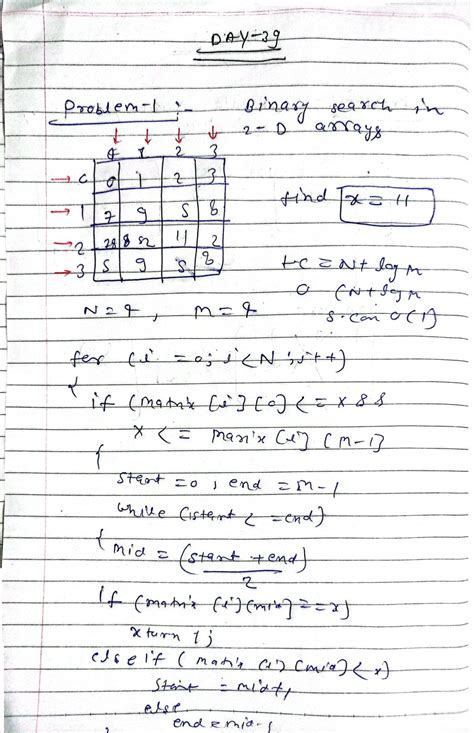 DAY-39
Problem-1 :- Binary search in
2-D arrays
0 1 2 3
0 0 1 2 3
1 7 9 5 8
2 11 2
3 5 9 5 8
find x = 11
TC = N + log M
O (N + log M
S.C on O(1)
N = 4 , M = 4
for (i = 0; i < N ; i++)
{
if (matrix [i] [0] <= x &&
x <= marix [i] [M-1]
{
start = 0 , end = M-1
while (start <= end)
{
mid = (start + end)
2
if (matrix [i] [mid] == x)
xturn 1;
else if ( matrix [i] [mid] < x)
start = mid+1,
else
end = mid-1